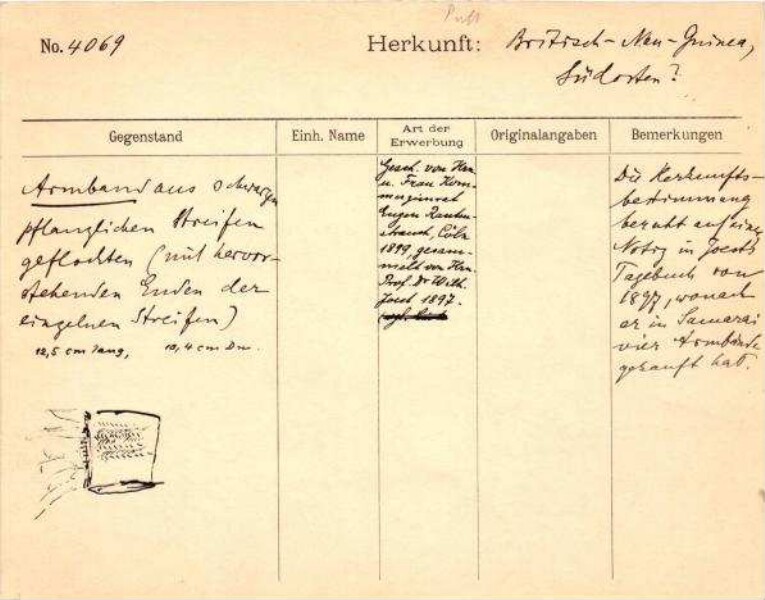 No. 4069
Herkunft: Britisch-Neu-Guinea,
Südosten?
Gegenstand
Einh. Name
Art der
Erwerbung
Originalangaben
Bemerkungen
Armband aus schwarzen
pflanzlichen Streifen
geflochten (mit hervor-
stehenden Enden der
einzelnen Streifen)
12,5 cm lang, 10,4 cm Dm.
Gesch. von Hrn.
u. Frau Kom-
merzienrat
Eugen Rauten-
strauch, Cöln
1899, gesam-
melt von Hrn.
Prof. Dr Wilh.
Joest 1897.
Die Herkunfts-
bestimmung
beruht auf einer
Notiz in Joests
Tagebuch von
1897, wonach
er in Samarai
vier Armbänder
gekauft hat.